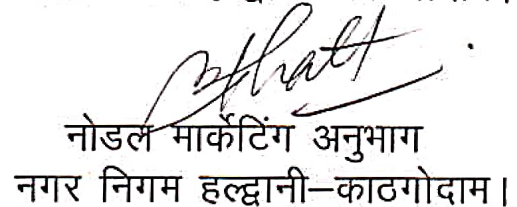 नोडल मार्केटिंग अनुभाग
नगर निगम हल्द्वानी–काठगोदाम।